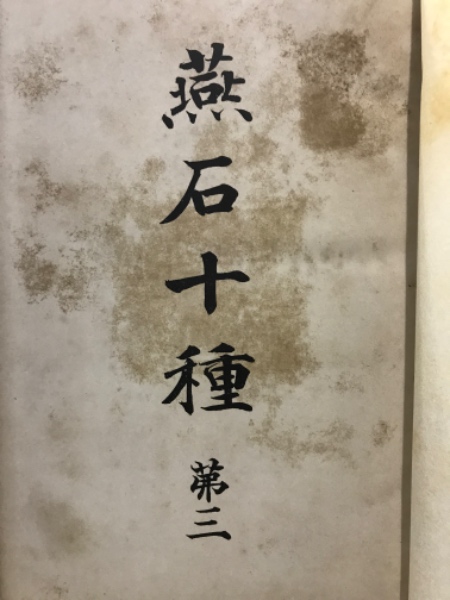 燕石十種
第三